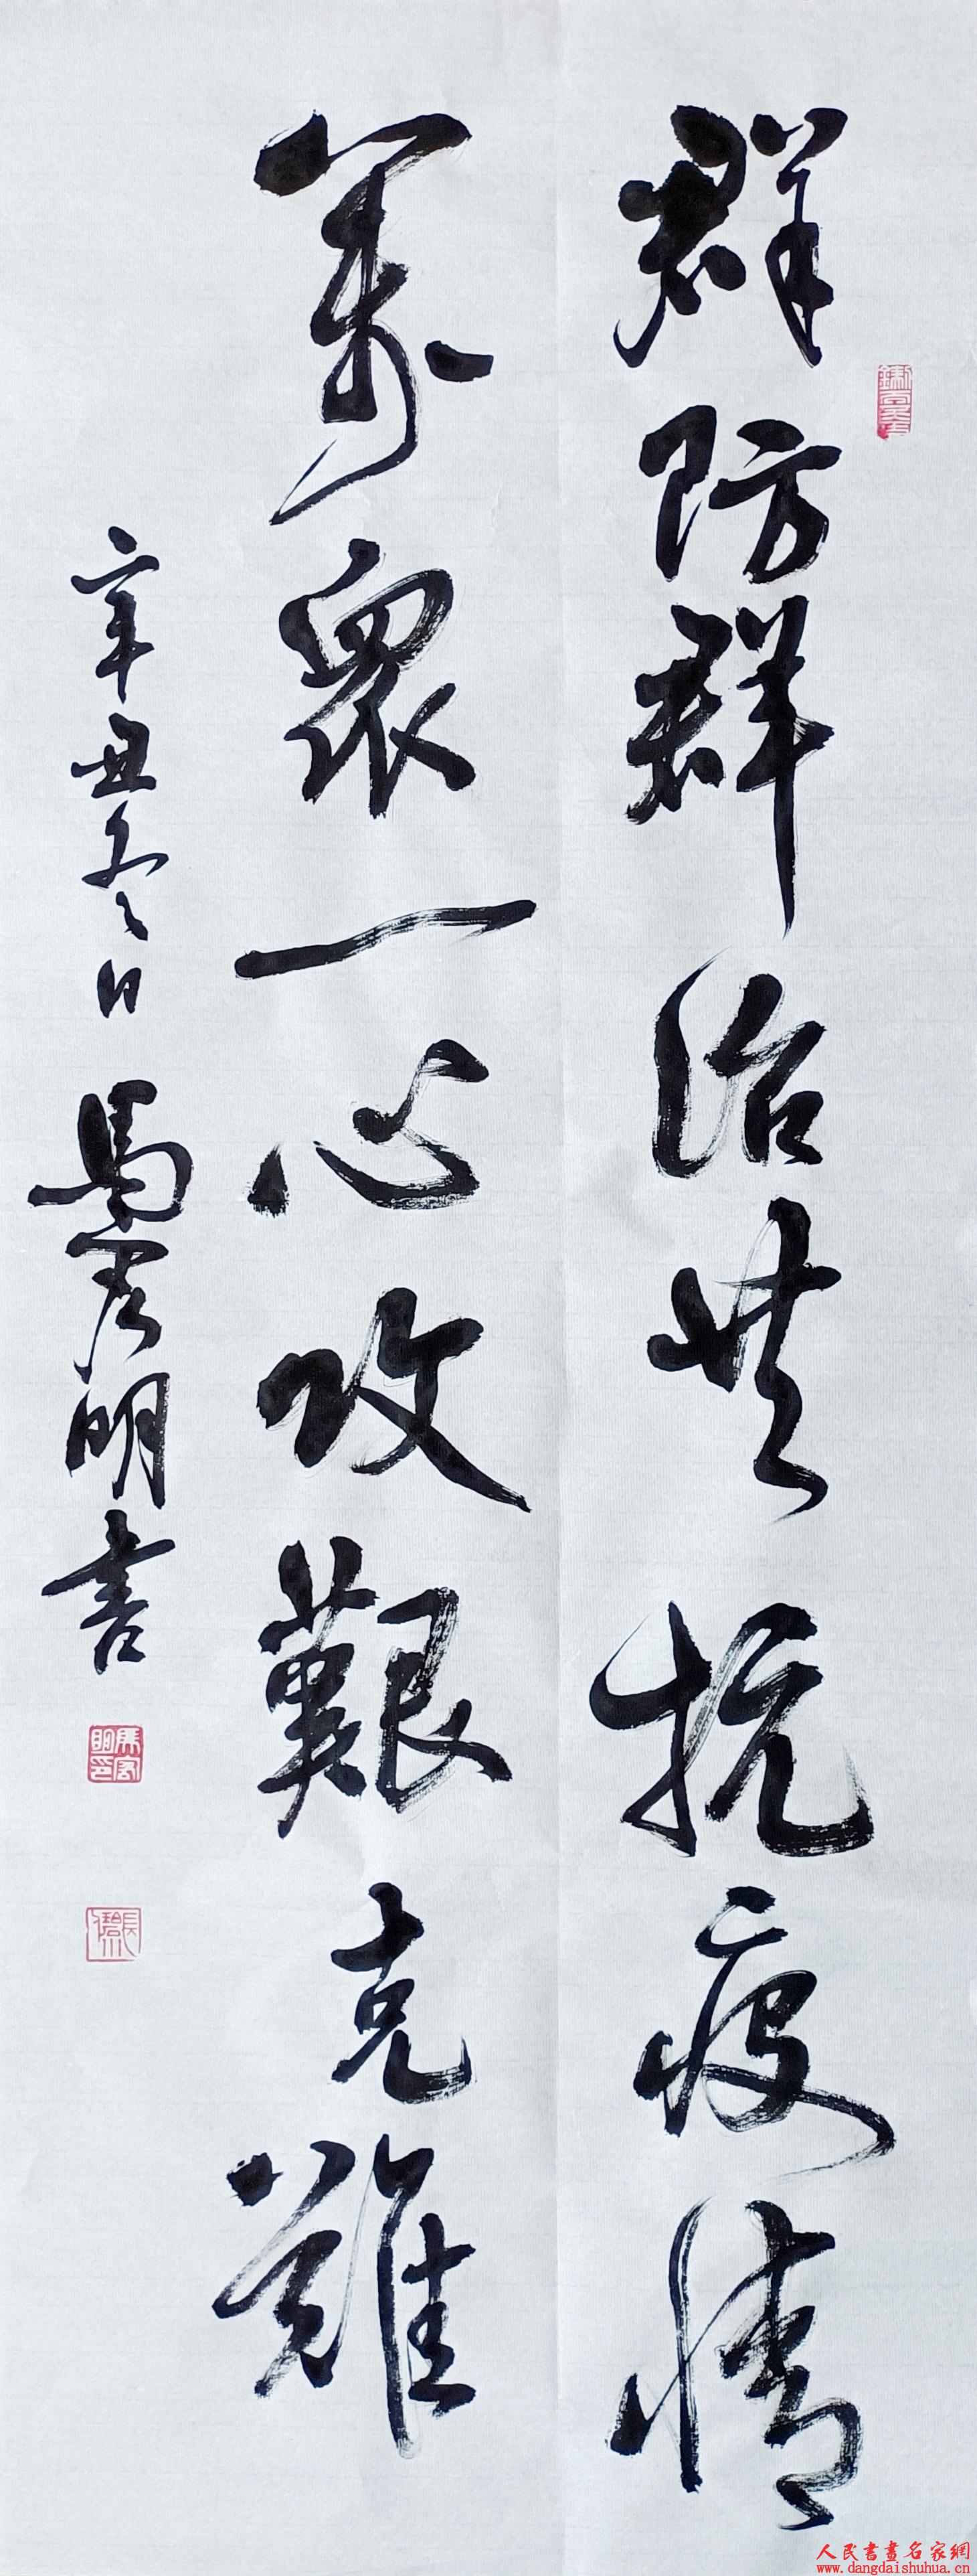 群防群治共抗疫情
萬眾一心攻艱克難
辛丑冬日馬君明書
人民書畫名家網
www.dangdaishuhua.cn